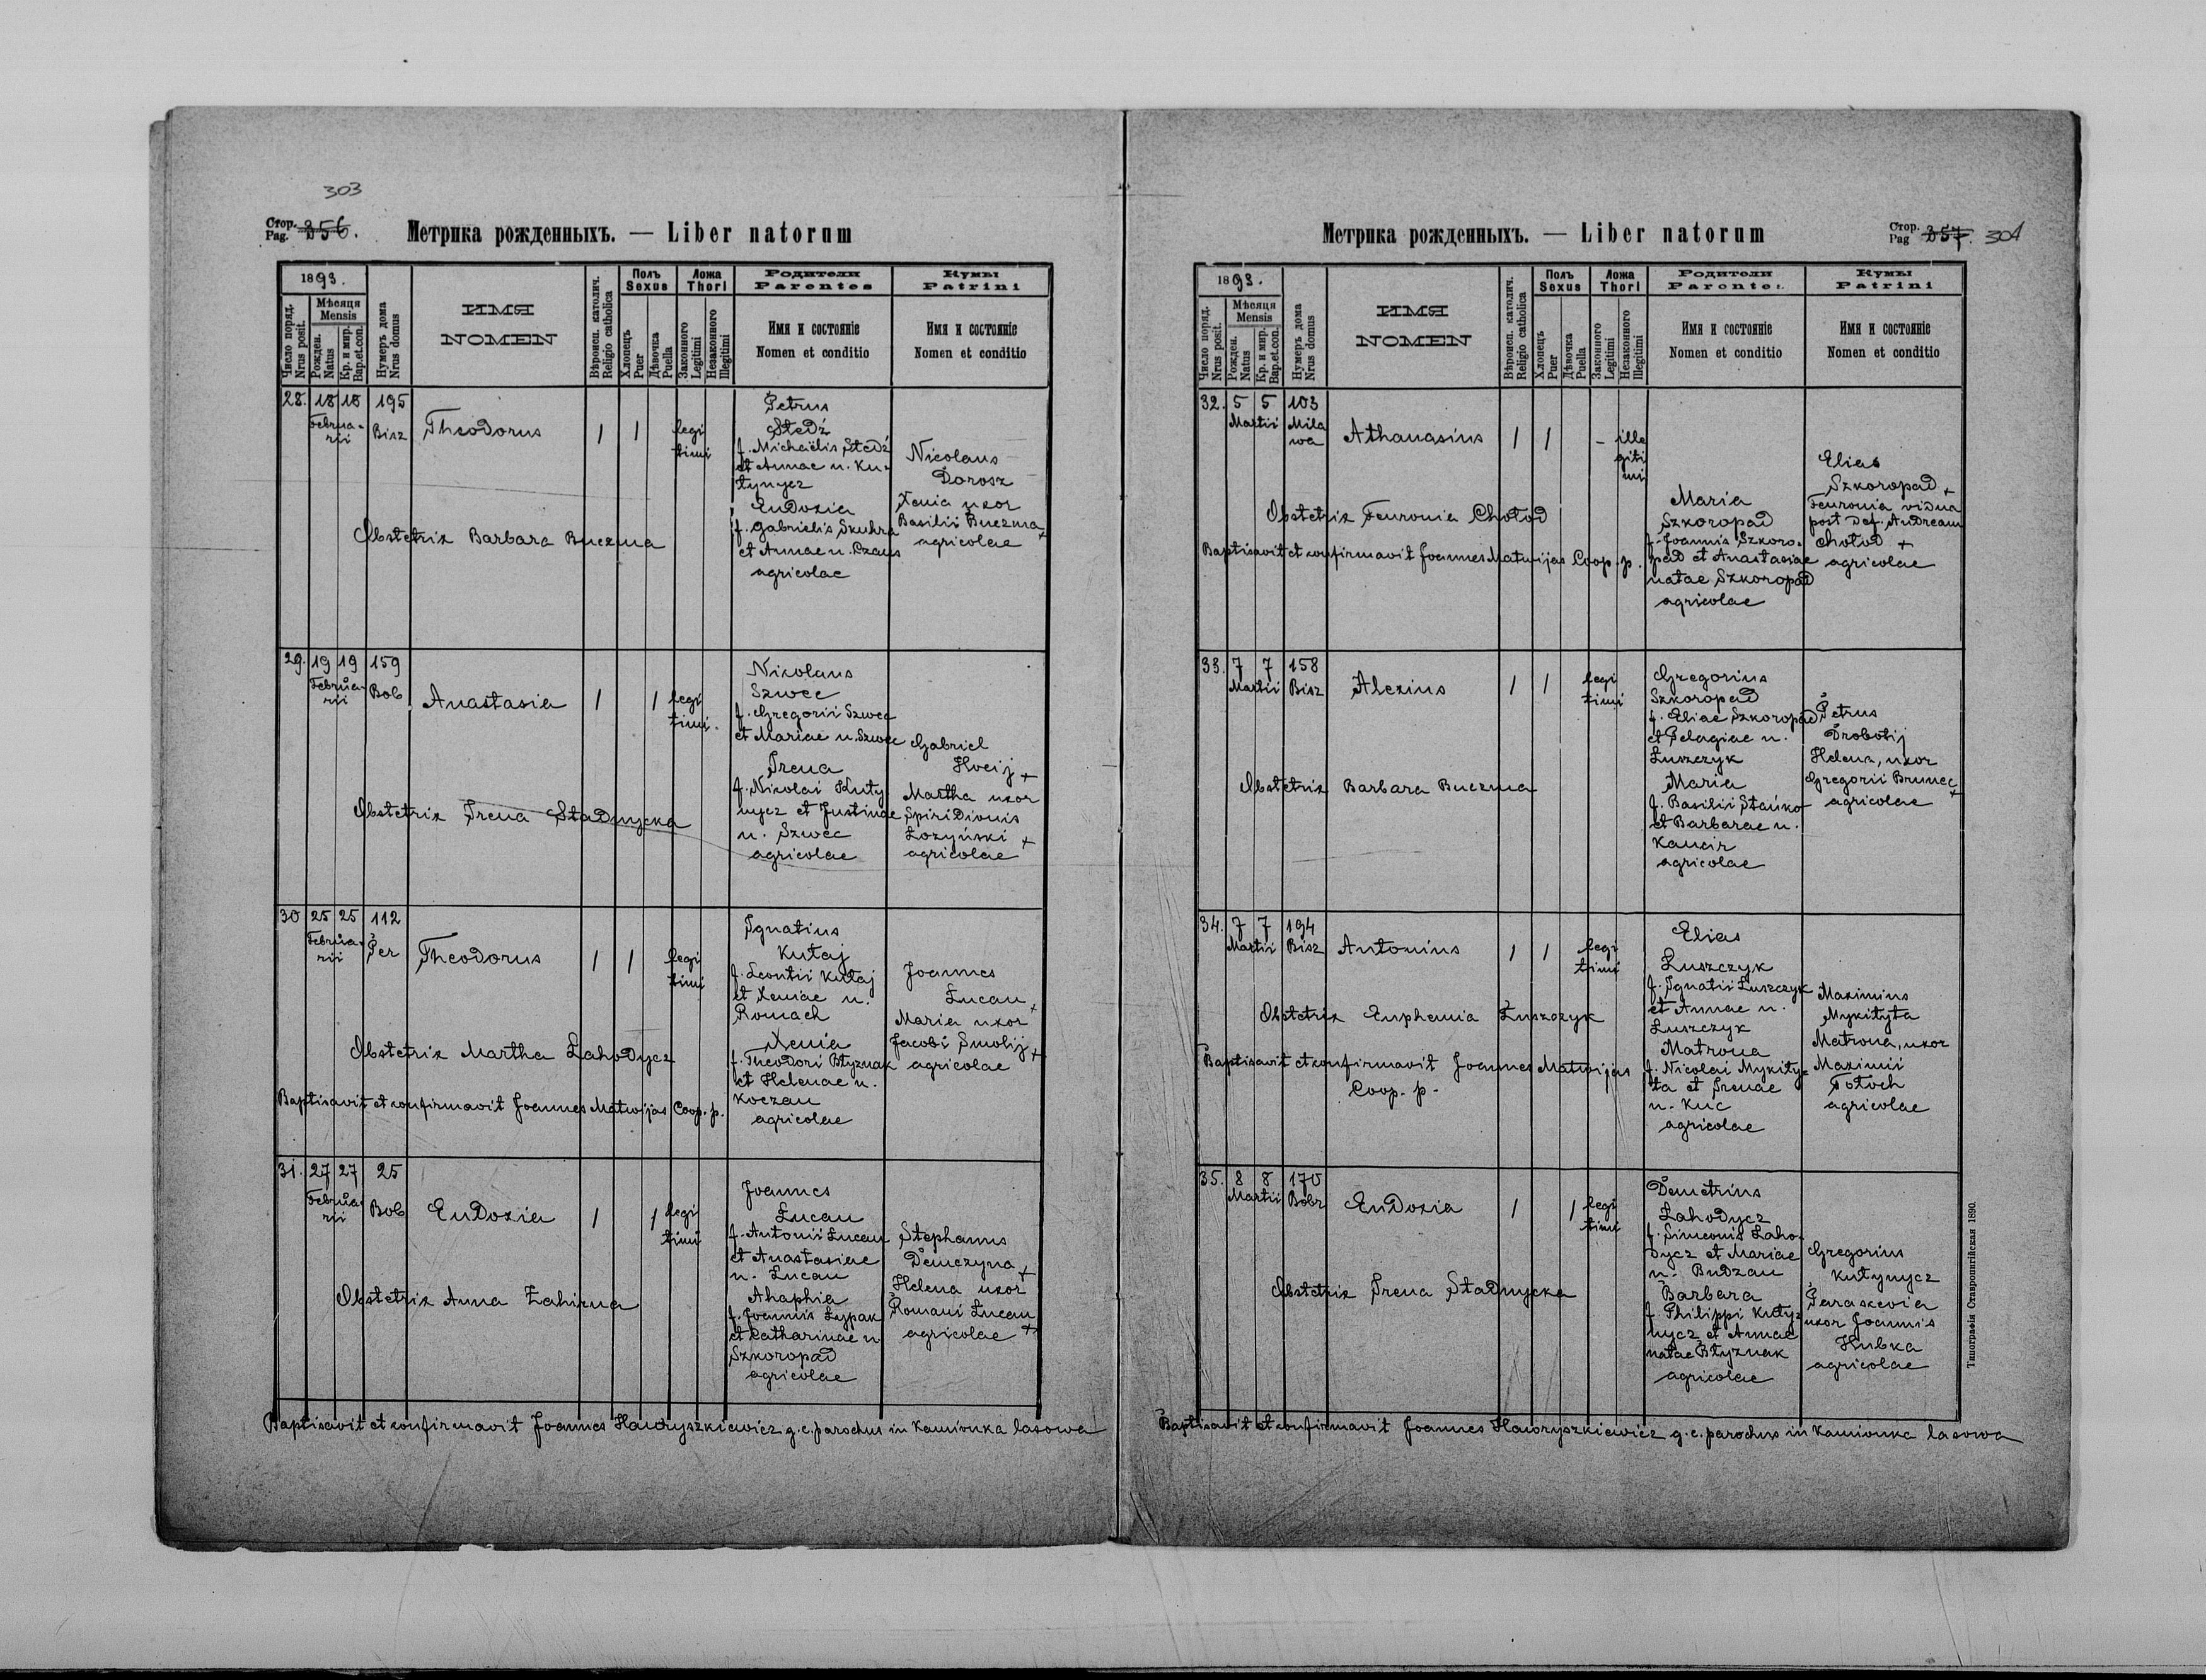 303
Стор. Pag. 256.
Метрика рожденныхъ. — Liber natorum
1893.
Число поряд. Nrus posit.
Мѣсяця Mensis
Рожден. Natus
Кр. и мир. Bap. et. con.
Нумеръ дома Nrus domus
ИМЯ
NOMEN
Вѣроисп. католич. Religio catholica
Полъ Sexus
Хлопецъ Puer
Дѣвочка Puella
Ложа Thori
Законного Legitimi
Незаконного Illegitimi
Родители
Parentes
Имя и состоянiе
Nomen et conditio
Кумы
Patrini
Имя и состоянiе
Nomen et conditio
28. 18 18 195
Februarii Bisz Theodorus 1 1 legitimi
Petrus
Stedź
f. Michaëlis Stedź
et Annae n. Ku-
tynycz
Eudoxia
f. Gabrielis Skuhra
et Annae n. Czaus
agricolae
Nicolaus
Dorosz
Xenia uxor
Basilii Buczma +
agricolae
Obstetrix Barbara Buczma
29. 19 19 159
Februarii Bob Anastasia 1 1 legitimi.
Nicolaus
Szwec
f. Gregorii Szwec
et Mariae n. Szwec
Irena
f. Nicolai Kuty
nycz et Justinae
n. Szwec
agricolae
Gabriel
Hveij +
Martha uxor
Spiridionis
Łozyński +
agricolae
Obstetrix Irena Stadnycka
30 25 25 112
Februarii Per Theodorus 1 1 legitimi
Ignatius
Kutaj
f. Leontii Kutaj
et Xeniae n.
Romach
Xenia
f. Theodori Błyznak
et Helenae n.
Koczan
agricolae
Joannes
Łucan +
Maria uxor
Jacobi Smolij +
agricolae
Obstetrix Martha Łahodycz
Baptisavit et confirmavit Joannes Matwijas Coop. p.
31. 27 27 25
Februarii Bob Eudoxia 1 1 legitimi
Joannes
Łucan
f. Antonii Łucan
et Anastasiae
n. Łucan
Ahaphia
f. Joannis Łypak
et Catharinae n.
Szkoropad
agricolae
Stephanus
Demczyna +
Helena uxor
Romani Łucan
agricolae +
Obstetrix Anna Zahirna
Baptisavit et confirmavit Joannes Hawryszkiewicz g.c. parochus in Kamionka lasowa
Метрика рожденныхъ. — Liber natorum
Стор. Pag 257. 304
1893.
Число поряд. Nrus posit.
Мѣсяця Mensis
Рожден. Natus
Кр. и мир. Bap. et. con.
Нумеръ дома Nrus domus
ИМЯ
NOMEN
Вѣроисп. католич. Religio catholica
Полъ Sexus
Хлопецъ Puer
Дѣвочка Puella
Ложа Thori
Законного Legitimi
Незаконного Illegitimi
Родители
Parentes
Имя и состоянiе
Nomen et conditio
Кумы
Patrini
Имя и состоянiе
Nomen et conditio
32. 5 5 103
Martii Milawa Athanasius 1 1 - illegitimi
Maria
Szkoropad
f. Joannis Szkoro-
pad et Anastasiae
natae Szkoropad
agricolae
Elias
Szkoropad +
Feuronia vidua
post def. Andream
Chołod +
agricolae
Obstetrix Feuronia Chołod
Baptisavit et confirmavit Joannes Matwijas Coop. p.
33. 7 7 158
Martii Bisz Alexius 1 1 legitimi
Gregorius
Szkoropad
f. Eliae Szkoropad
et Pelagiae n.
Łuszczyk
Maria
f. Basilii Stańko
et Barbarae n.
Kancir
agricolae
Petrus
Drobotij
Helena, uxor
Gregorii Brunec +
agricolae
Obstetrix Barbara Buczma
34. 7 7 194
Martii Bisz Antonius 1 1 legitimi
Elias
Łuszczyk
f. Ignatii Łuszczyk
et Annae n.
Łuszczyk
Matrona
f. Nicolai Mykity-
ta et Irenae
n. Kuc
agricolae
Maximius
Mykityta
Matrona, uxor
Maximii
Tołoch
agricolae
Obstetrix Euphemia Łuszczyk
Baptisavit et confirmavit Joannes Matwijas
Coop. p.
35. 8 8 170
Martii Bobr Eudoxia 1 1 legitimi
Demetrius
Łahodycz
f. Simeonis Łaho-
dycz et Mariae
n. Budzan
Barbara
f. Philippi Kuty-
nycz et Annae
natae Błyznak
agricolae
Gregorius
Kutynycz
Paraskevia
uxor Joannis
Hubka
agricolae
Obstetrix Irena Stadnycka
Baptisavit et confirmavit Joannes Hawryszkiewicz g.c. parochus in Kamionka lasowa
Типографія Ставропигійская 1890.